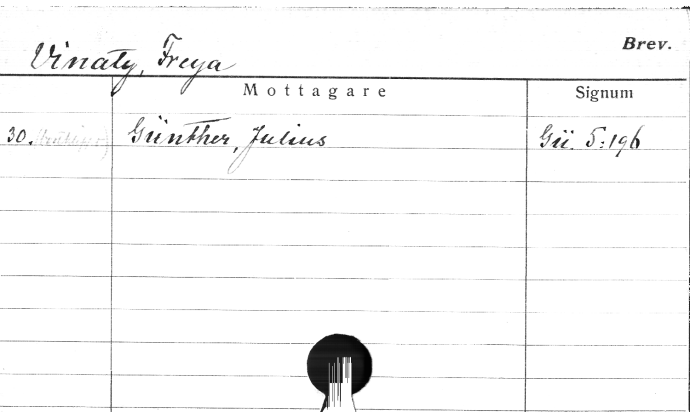 Vinaty, Freya
Brev.
Mottagare
Signum
30.
Günther, Julius
Gü. 5:196